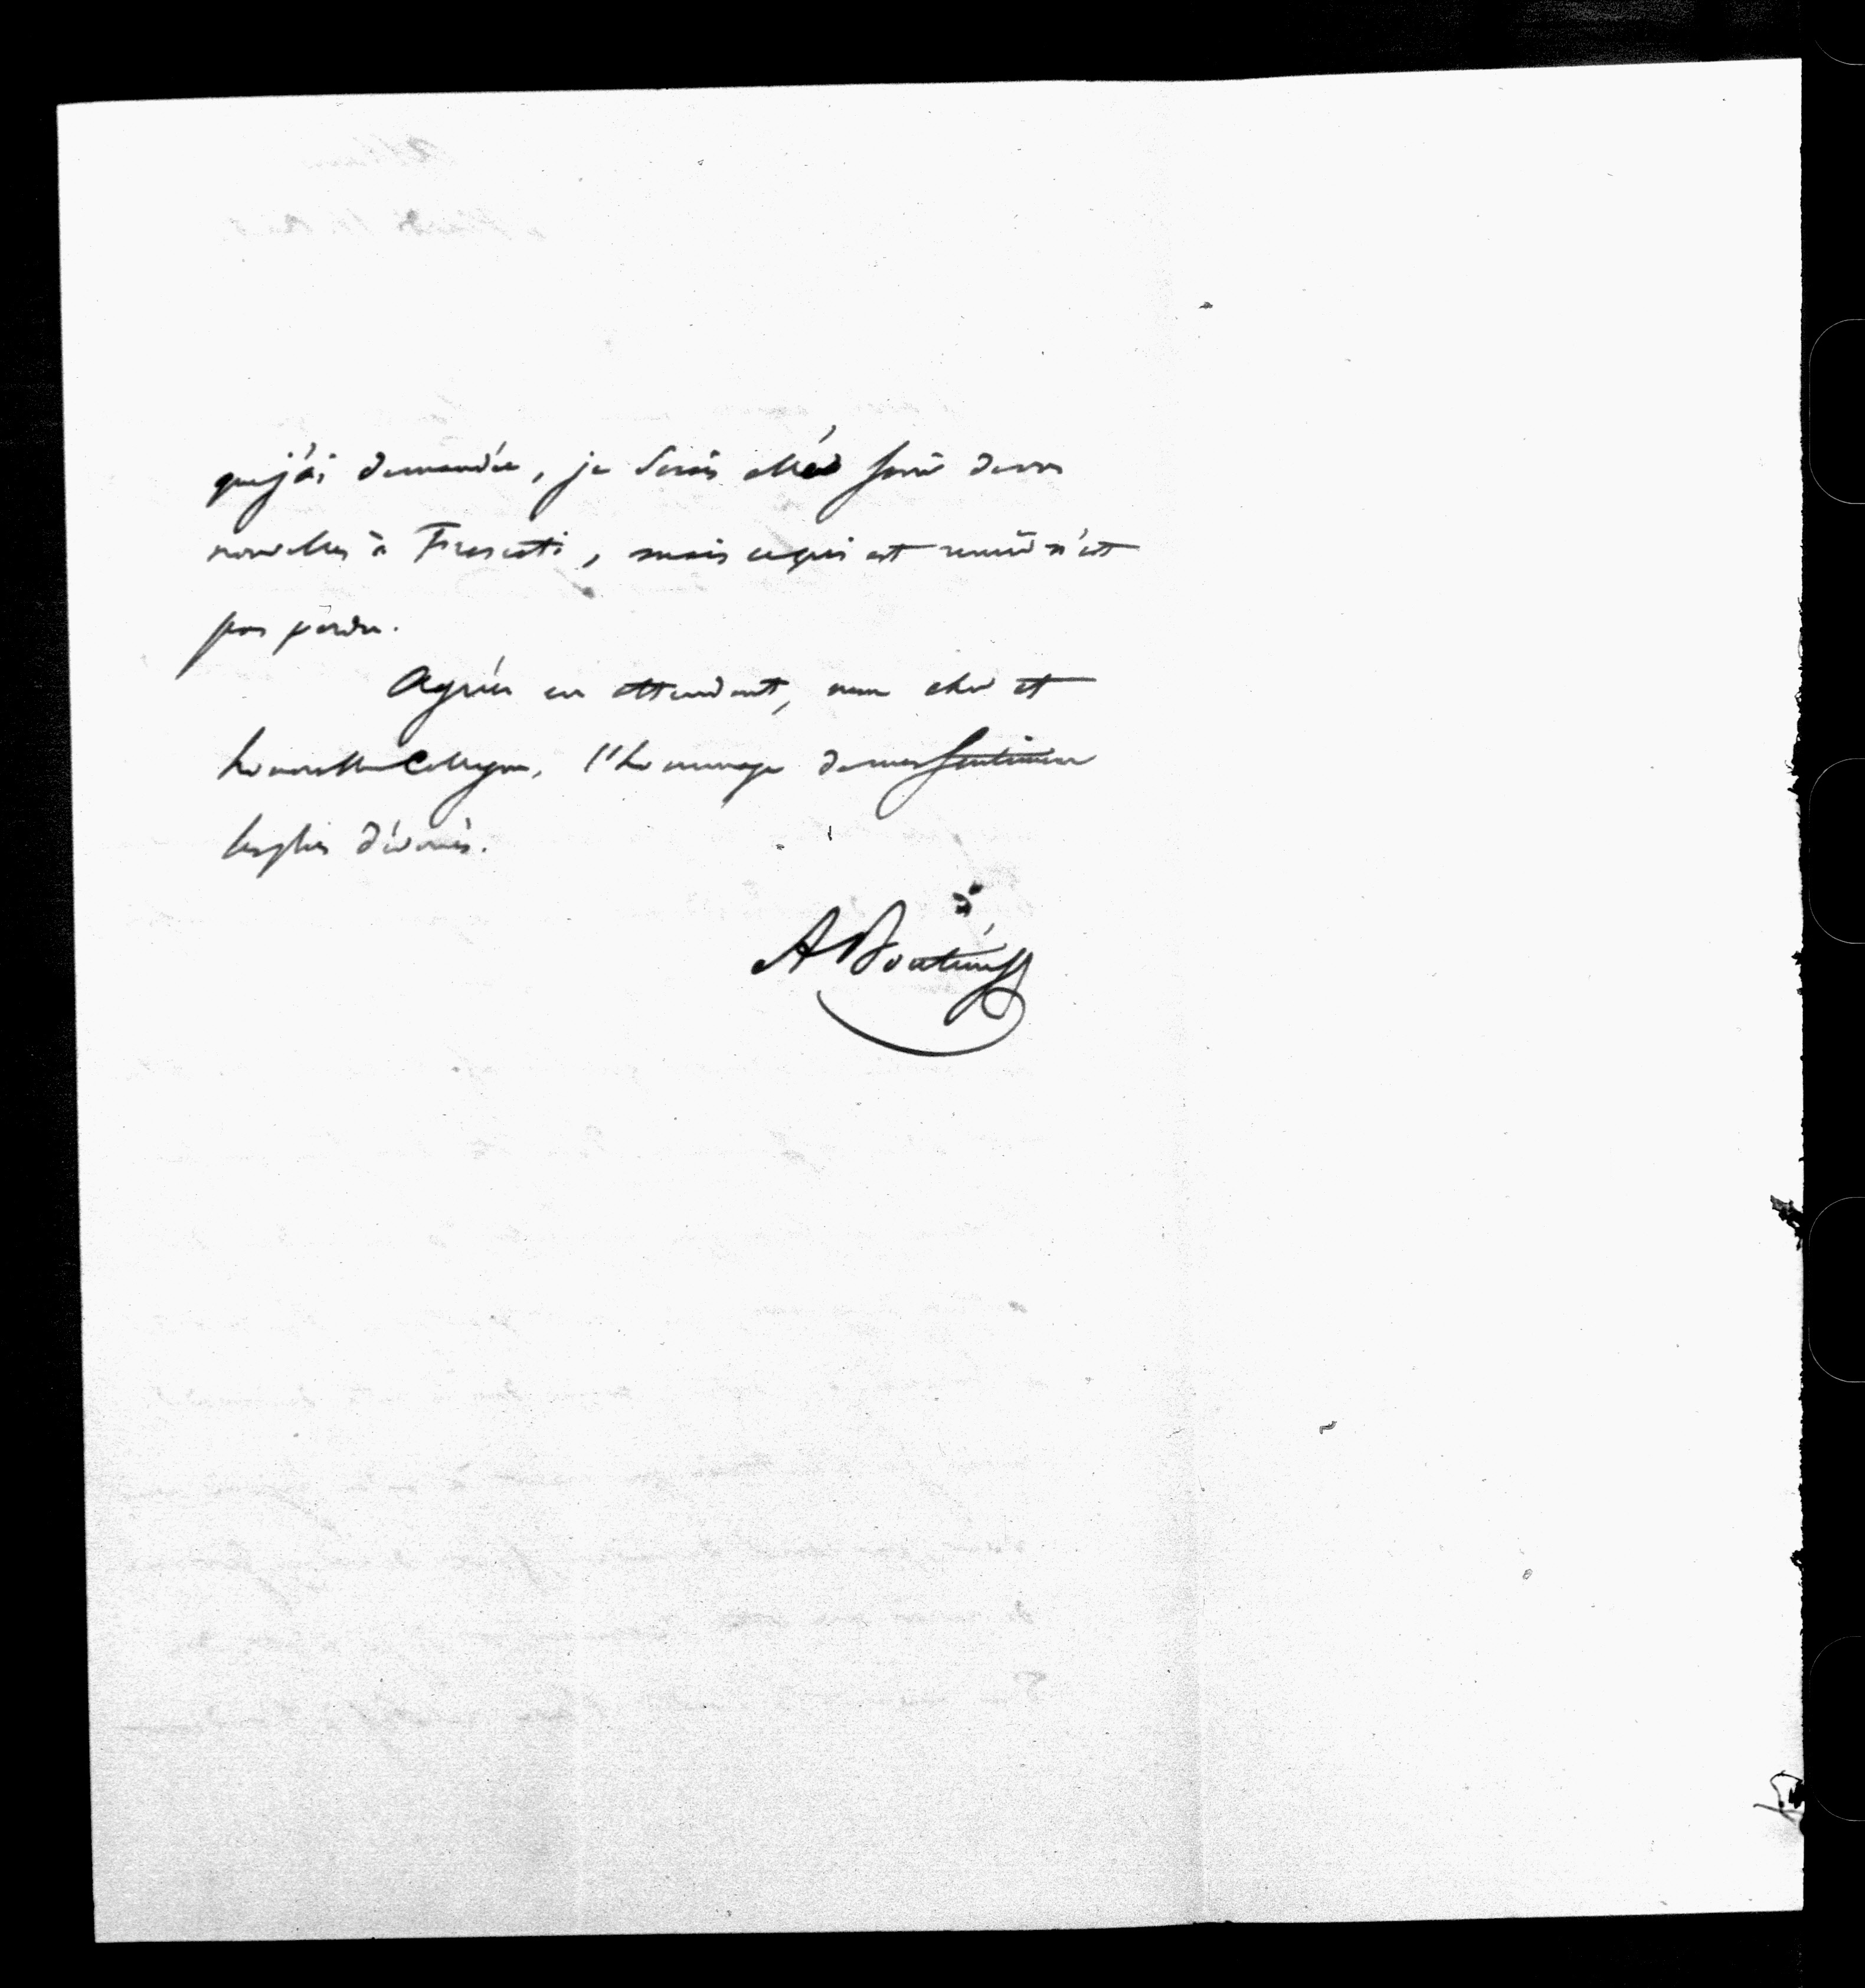 que j'ai demandée, je serais allé savoir de vos
nouvelles à Frascati, mais ce qui est remis n'est
pas perdu.
Agréez en attendant, mon cher et
honorable Collègue, l'hommage de mes sentimens
les plus dévoués.